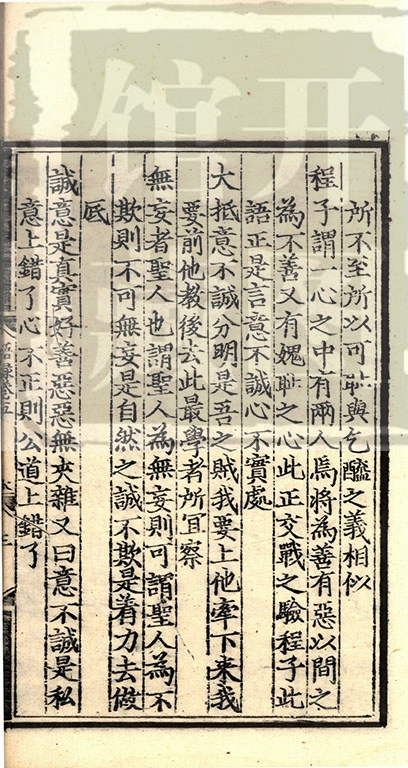 所不至所以可恥與乞醯之義相似
程子謂一心之中有兩人焉將為善有惡以間之
為不善又有媿恥之心此正交戰之驗程子此
語正是言意不誠心不實處
大抵意不誠分明是吾之賊我要上他牽下來我
要前他教後去此最學者所宜察
無妄者聖人也謂聖人為無妄則可謂聖人為不
欺則不可無妄是自然之誠不欺是着力去做
底
誠意是真實好善惡惡無夾雜又曰意不誠是私
意上錯了心不正則公道上錯了